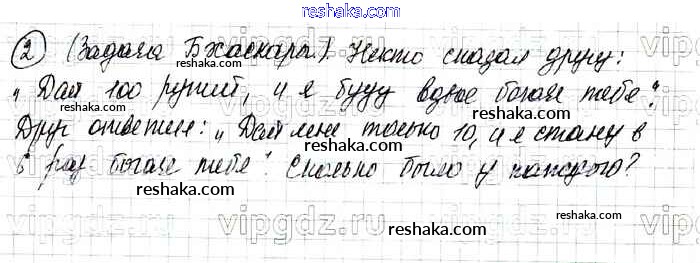 reshaka.com
② (Задача Бхаскары). Некто сказал другу:
„Дай 100 рупий, и я буду вдвое богаче тебя“.
Друг ответил: „Дай мне только 10, и я стану в
6 раз богаче тебя“. Сколько было у каждого?
reshaka.com
reshaka.com
reshaka.com
reshaka.com
reshaka.com
reshaka.com
reshaka.com
reshaka.com
vipgdz.ru
vipgdz.ru
vipgdz.ru